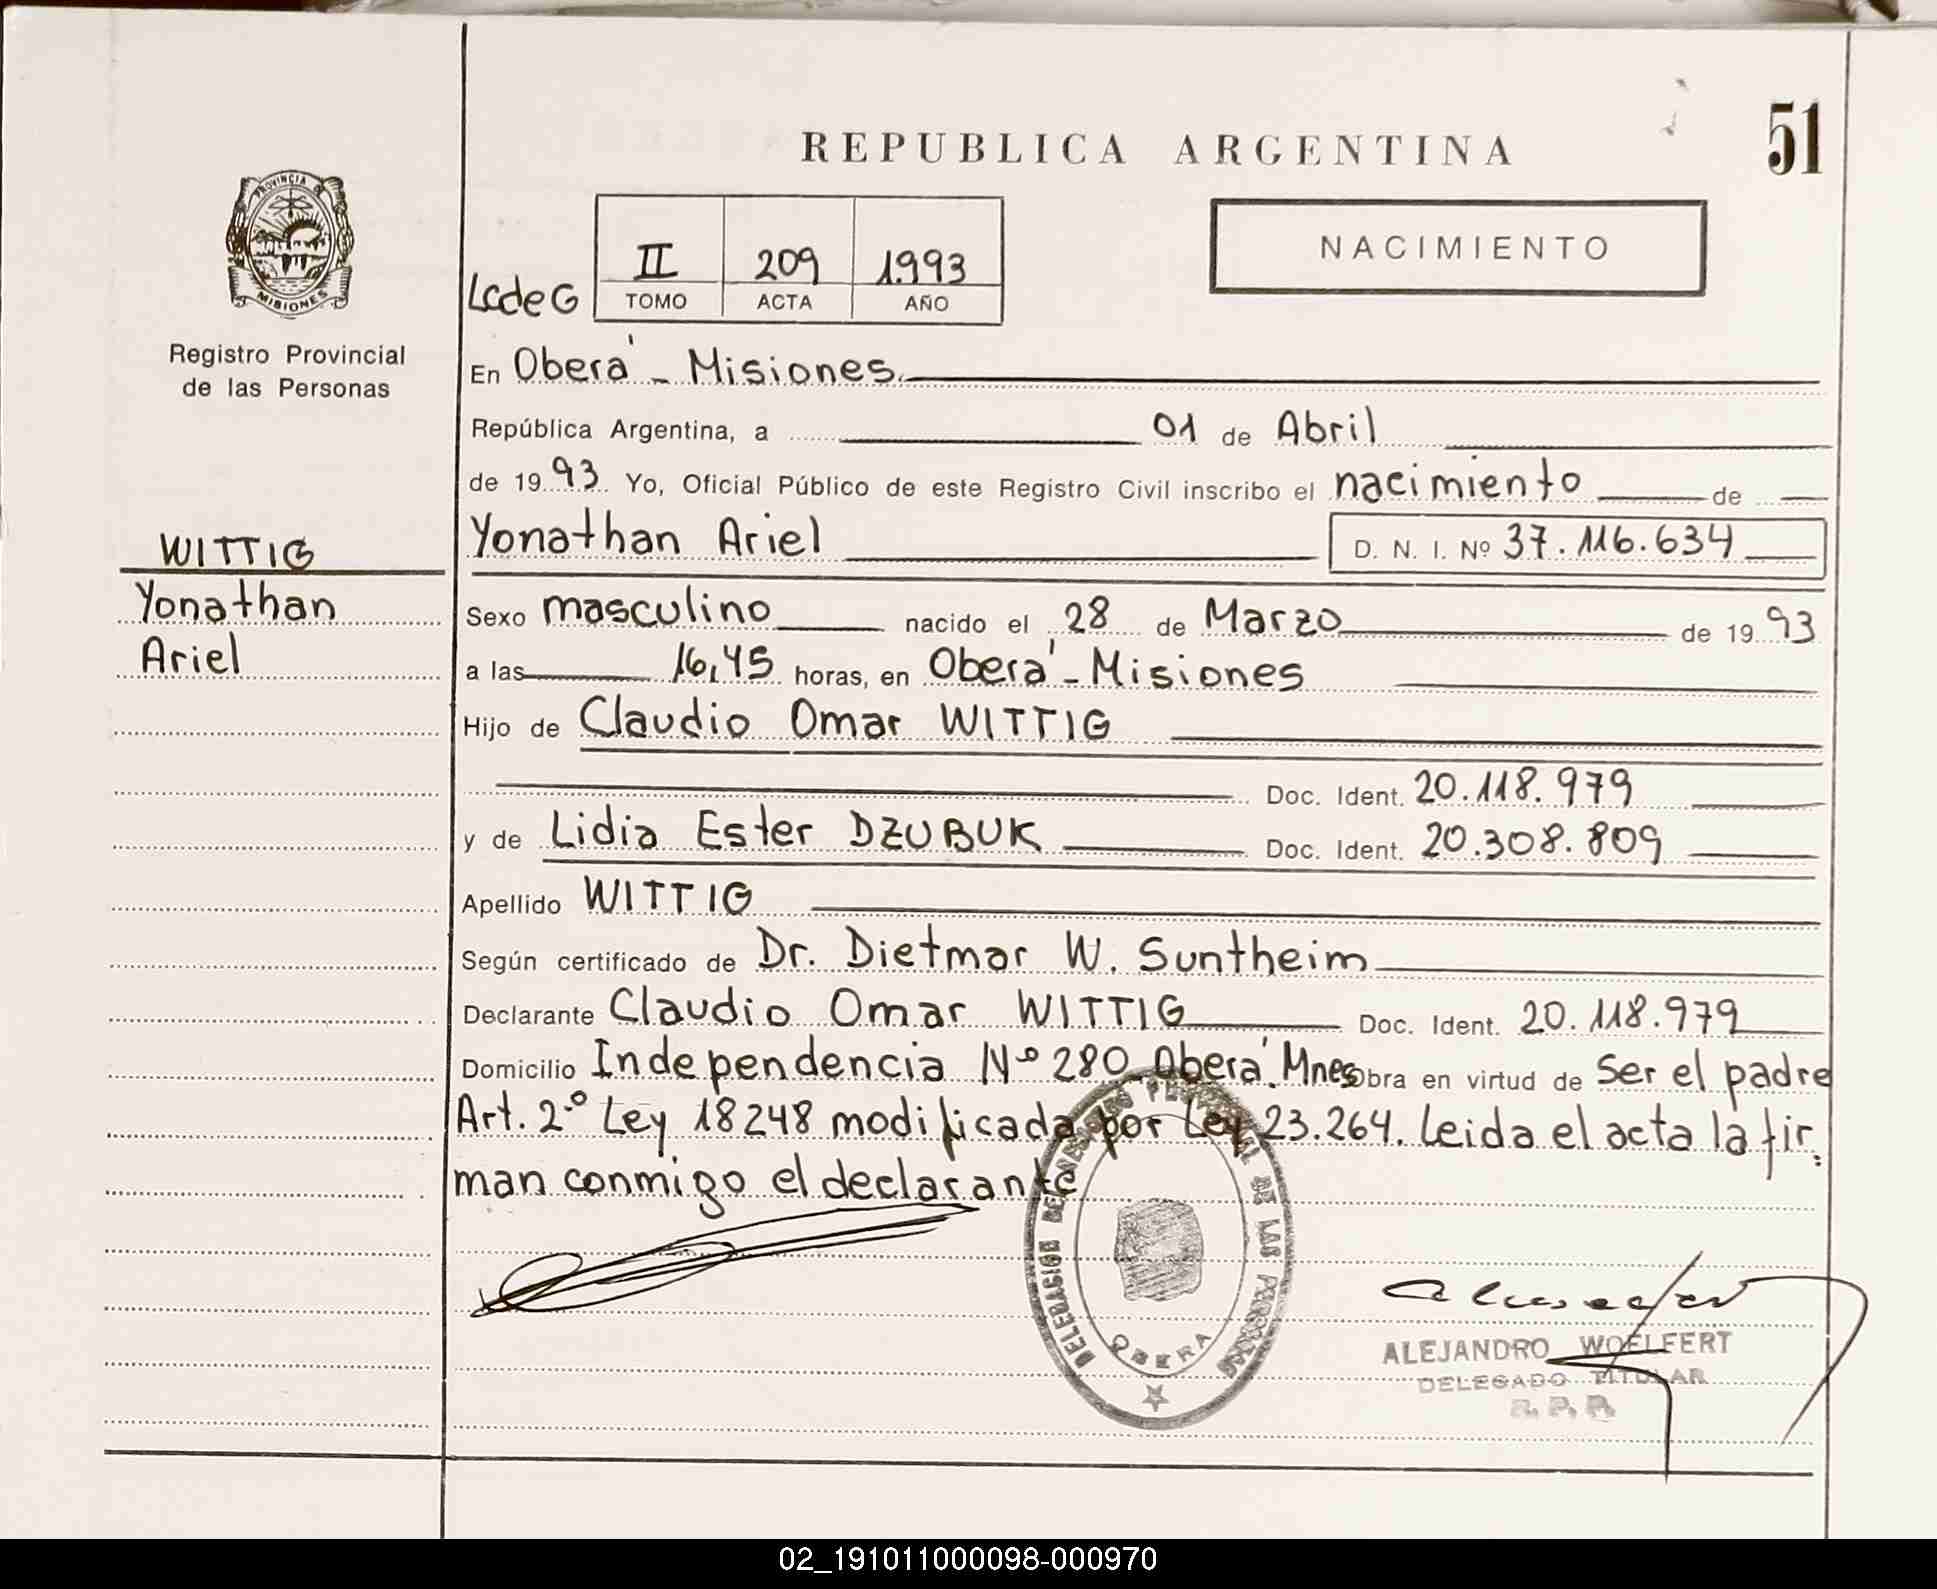 51
REPUBLICA ARGENTINA
PROVINCIA DE
MISIONES
NACIMIENTO
II 209 1.993
LcdeG TOMO ACTA AÑO
Registro Provincial
de las Personas
En Oberá - Misiones
República Argentina, a 01 de Abril
de 19 93 Yo, Oficial Público de este Registro Civil inscribo el nacimiento de
Yonathan Ariel D. N. I. Nº 37.116.634
WITTIG
Yonathan
Ariel
Sexo masculino nacido el 28 de Marzo de 19 93
a las 16,45 horas, en Oberá - Misiones
Hijo de Claudio Omar WITTIG
Doc. Ident. 20.118.979
y de Lidia Ester DZUBUK Doc. Ident. 20.308.809
Apellido WITTIG
Según certificado de Dr. Dietmar W. Suntheim
Declarante Claudio Omar WITTIG Doc. Ident. 20.118.979
Domicilio Independencia Nº 280 Oberá. Mnes Obra en virtud de ser el padre
Art. 2.º Ley 18248 modificada por Ley 23.264. Leida el acta la fir
man conmigo el declarante
DELEGACION DE LAS PERSONAS
OBERA
ALEJANDRO WOELFERT
DELEGADO TITULAR
R. P. P.
02_191011000098-000970